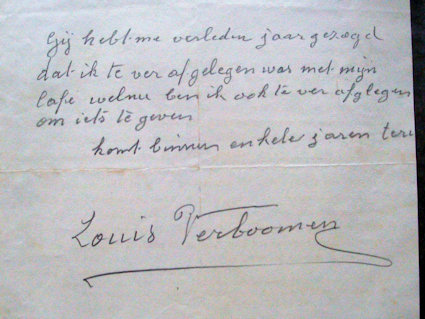 Gij hebt me verleden jaar gezegd
dat ik te ver afgelegen was met mijn
Cafe welnu ben ik ook te ver afglegen
om iets te geven
komt binnen enkele jaren teru
Louis Verboomen